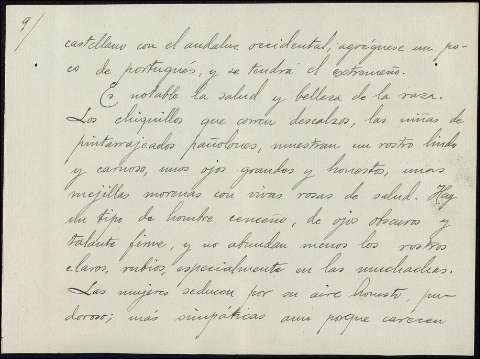 9/
castellano con el andaluz occidental, agréguese un po-
co de portugués, y se tendrá el extremeño.
Es notable la salud y belleza de la raza.
Los chiquillos que corren descalzos, las niñas de
pintarrajeados pañolones, muestran un rostro lindo
y carnoso, unos ojos grandes y honestos, unas
mejillas morenas con vivas rosas de salud. Hay
un tipo de hombre cenceño, de ojos obscuros y
talante firme, y no abundan menos los rostros
claros, rubios, especialmente en las muchachas.
Las mujeres seducen por su aire honesto, pu-
doroso; más simpáticas aun porque carecen